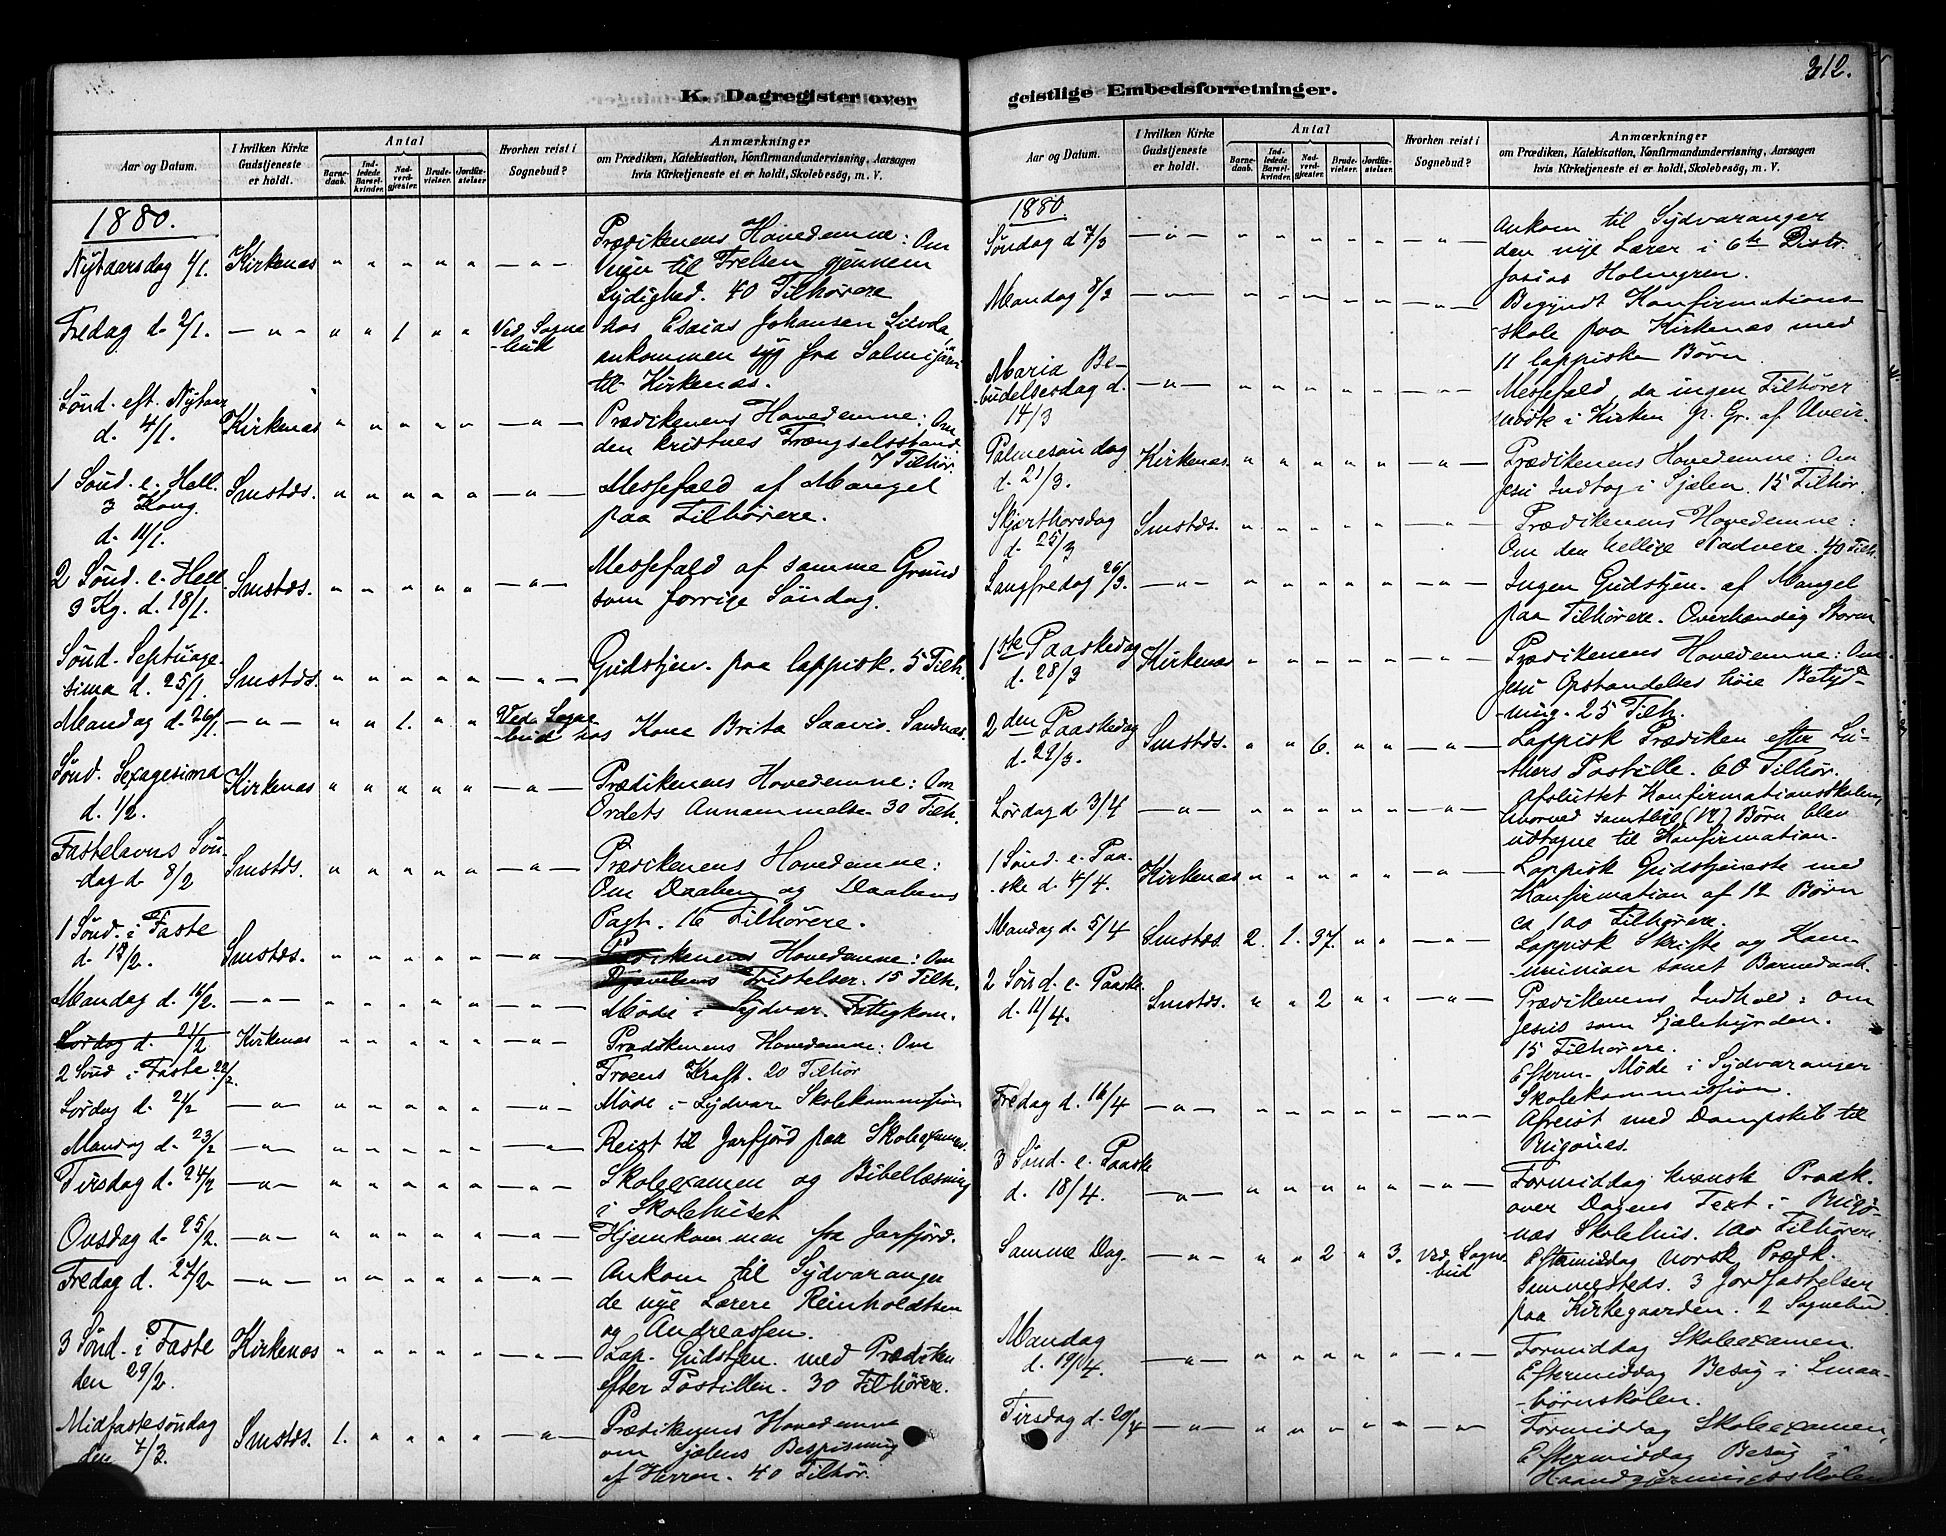 K. Dagregister over
Aar og Datum.
I hvilken Kirke Gudstjeneste er holdt.
Antal
Barnedaab.
Indledede Barselkvinder.
Nadverdgjester.
Brudevielser.
Jordfæstelser.
Hvorhen reist i Sognebud?
Anmærkninger
om Prædiken, Katekisation, Konfirmandundervisning, Aarsagen
hvis Kirketjeneste ei er holdt, Skolebesøg, m. V.
1880.
Nytaarsdag 1/1. Kirkenæs " " " " " —"— Prædikenens Hovedemne: Om
Veien til Frelsen gjennem
Lydighed. 40 Tilhørere
Fredag d. 2/1. —"— " " 1 " " Ved Sogne-
bud hos Esaias Johansen
ankommen syg fra
til Kirkenæs.
Sønd. eft. Nytaar
d. 4/1. Kirkenæs " " " " " —"— Prædikenens Hovedemne: Om
den kristnes Trængselsstand.
7 Tilhør.
1 Sønd. e. Hell.
3 Kong.
d. 11/1. Smstds. " " " " " —"— Messefald af Mangel
paa Tilhørere.
2 Sønd. e. Hell
3 Kg. d. 18/1. Smstds. " " " " " —"— Messefald af samme Grund
som forrige Søndag.
Sønd. Septuage-
sima d. 25/1. Smstds. " " " " " —"— Gudstjen. paa lappisk. 5 Tilh.
Mandag d. 26/1. —"— " " 1. " " Ved Sogne-
bud hos Kone Brita Saavis. Sandnæs.
Sønd. Sexagesima
d. 1/2. Kirkenæs " " " " " —"— Prædikenens Hovedemne: Om
Ordets Annammelse. 30 Tilh.
Fastelavns Søn-
dag d. 8/2 Smstds. " " " " " —"— Prædikenens Hovedemne:
Om Daaben og Daabens
Pagt. 16 Tilhørere.
1 Sønd. i Faste
d. 15/2. Smstds. " " " " " —"— Prædikenens Hovedemne: Om
Djævelens Fristelser. 15 Tilh.
Mandag d. 16/2. —"— " " " " " —"— Møde i Sydvar. Fattigkom.
Lørdag d. 21/2 Kirkenæs " " " " " —"— Prædikenens Hovedemne: Om
2 Sønd i Faste 22/2. Troens Kraft. 20 Tilhør
Lørdag d. 21/2 —"— " " " " " —"— Møde i Sydvar. Skolekommission
Mandag d. 23/2 —"— " " " " " —"— Reist til Jarfjord paa Skoleexamen.
Tirsdag d. 24/2 —"— " " " " " —"— Skoleexamen og Bibellæsning
i Skolehuset
Onsdag d. 25/2. —"— " " " " " —"— Hjemkommen fra Jarfjord.
Fredag d. 27/2. —"— " " " " " —"— Ankom til Sydvaranger
de nye Lærere Reinholdtsen
og Andreassen.
3 Sønd. i Faste
den 29/2. Kirkenæs " " " " " —"— Lap. Gudstjen. med Prædiken
efter Postillen. 30 Tilhørere.
Midfastesøndag
den 7/3. Smstds. 1. " " " " —"— Prædikenens Hovedemne
om Sjælens Bespisning
af Herren. 40 Tilhør.
212.
geistlige Embedsforretninger.
Aar og Datum.
I hvilken Kirke Gudstjeneste er holdt.
Antal
Barnedaab.
Indledede Barselkvinder.
Nadverdgjester.
Brudevielser.
Jordfæstelser.
Hvorhen reist i Sognebud?
Anmærkninger
om Prædiken, Katekisation, Konfirmandundervisning, Aarsagen
hvis Kirketjeneste ei er holdt, Skolebesøg, m. V.
1880
Søndag d 7/3 —"— " " " " " —"— Ankom til Sydvaranger
den nye Lærer i 6te Distr.
Josias Holmgren.
Mandag 8/3 —"— " " " " " —"— Begyndt Konfirmations-
skole paa Kirkenæs med
11 lappiske Børn.
Maria Be-
budelsesdag d.
14/3 —"— " " " " " —"— Messefald, da ingen Tilhører
mødte i Kirken p. Gr. af Uveir.
Palmesøndag
d. 21/3. Kirkenæs. " " " " " —"— Prædikenens Hovedemne: Om
Jesu Indtog i Sjælen. 15 Tilhør.
Skjærthorsdag
d. 25/3 Smstds. " " " " " —"— Prædikenens Hovedemne:
Om den hellige Nadvere. 40 Tilh.
Langfredag 26/3. —"— " " " " " —"— Ingen Gudstjen. af Mangel
paa Tilhørere. Overhændig Storm
1ste Paaskedag
d. 28/3 Kirkenæs " " " " " —"— Prædikenens Hovedemne: Om
Jesu Opstandelses høie Betyd-
ning. 25 Tilh.
2den Paaskedag
d. 29/3. Smstds. " " 6. " " —"— Lappisk Prædiken efter Lu-
thers Postille. 60 Tilhør.
Lørdag d 3/4 —"— " " " " " —"— Afsluttet Konfirmationsskolen,
hvorved samtlige (12) Børn blev
udtagne til Konfirmation.
1 Sønd. e. Paa-
ske d. 4/4. Kirkenæs " " " " " —"— Lappisk Gudstjeneste med
Konfirmation af 12 Børn
ca 100 Tilhørere.
Mandag d. 5/4 Smstds. 2. 1. 37. " " —"— Lappisk Skrifte og Kom-
munion samt Barnedaab.
2 Sønd. e. Paaske
d. 11/4. Smstds. " " 2 " " —"— Prædikenens Indhold: Om
Jesus som Sjælehyrden.
15 Tilhørere.
Efterm. Møde i Sydvaranger
Skolekommission.
Fredag d. 16/4 —"— " " " " " —"— Afreist med Dampskib til
Bugønæs.
3 Sønd. e. Paaske
d. 18/4. —"— " " " " " —"— Formiddag kvænsk Prædk.
over Dagens Text i Bugø-
næs Skolehus. 100 Tilhørere.
Samme Dag. —"— " " 2 " 3. Ved Sogne-
bud Eftermiddag norsk Prædk.
sammesteds. 3 Jordfæstelser
paa Kirkegaarden. 2 Sognebud.
Mandag
d. 19/4. —"— " " " " " —"— Formiddag Skoleexamen.
Eftermiddag Besøg i Smaa-
børnskolen.
Tirsdag d. 20/4 —"— " " " " " —"— Formiddag Skoleexamen,
Eftermiddag Besøg i
Haandgjerningsskolen